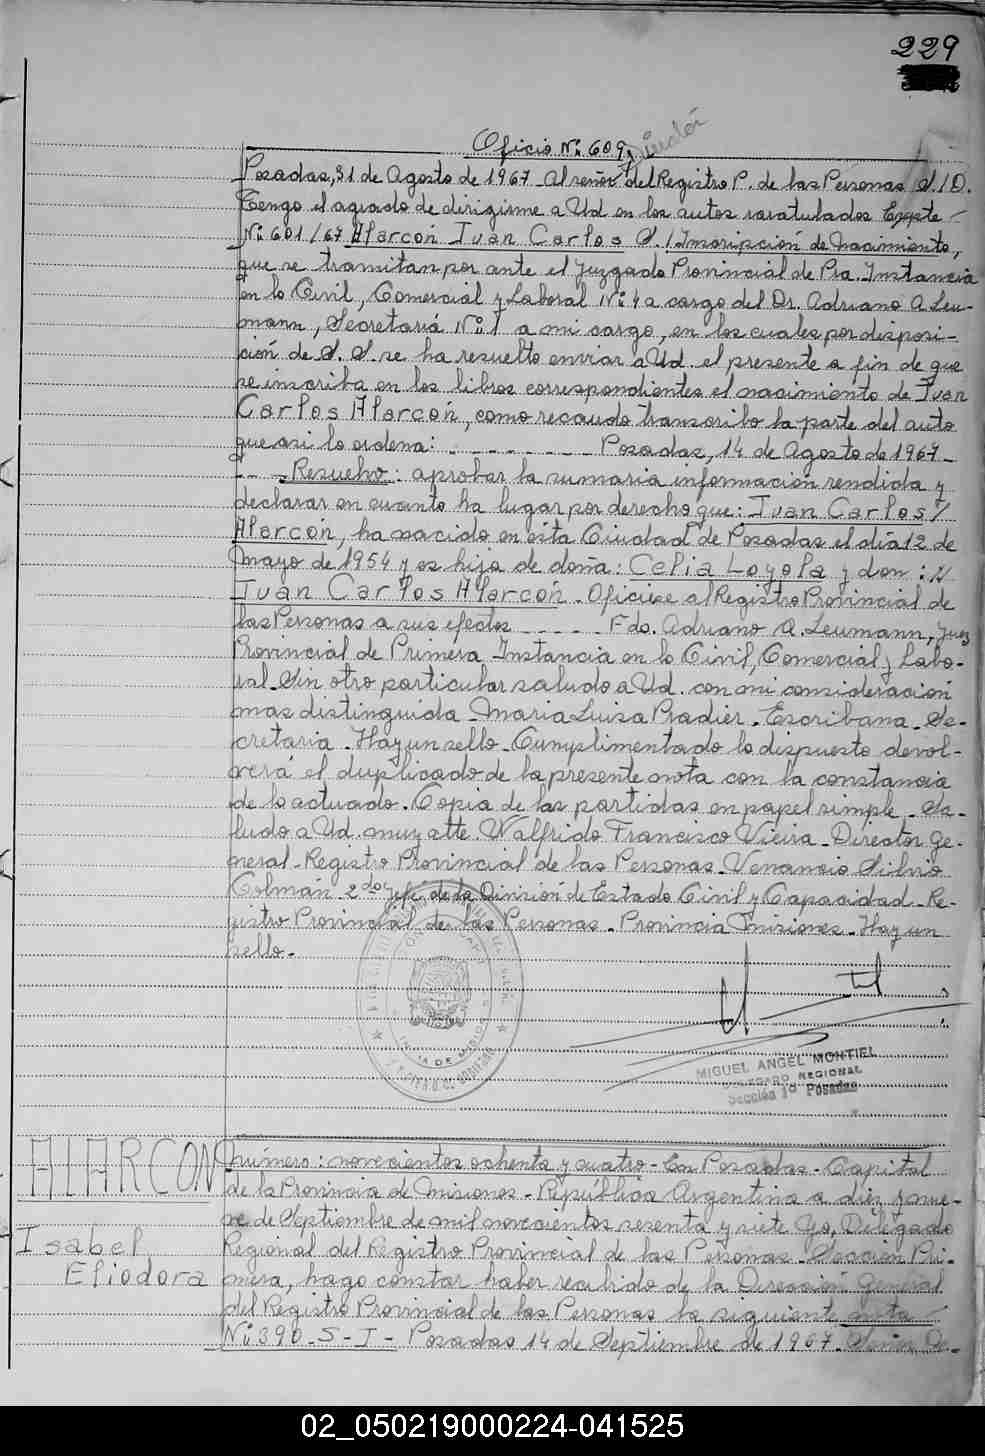 229
Oficio Nº 609
Director
Posadas, 31 de Agosto de 1967 Al señor del Registro P. de las Personas S./D.
Tengo el agrado de dirigirme a Ud en los autos caratulados Expte
Nº 601/67 Alarcón Juan Carlos S./Inscripción de Nacimiento,
que se tramitan por ante el Juzgado Provincial de Pra. Instancia
en lo Civil, Comercial y Laboral Nº 4 a cargo del Dr. Adriano A Leu-
mann, Secretaría Nº 1 a mi cargo, en los cuales por disposi-
ción de S. S. se ha resuelto enviar a Ud. el presente a fin de que
se inscriba en los libros correspondientes el nacimiento de Juan
Carlos Alarcón, como recaudo transcribo la parte del auto
que asi lo ordena: - - - - - - - - Posadas, 14 de Agosto de 1967-
- - - Resuelvo: aprobar la sumaria información rendida y
declarar en cuanto ha lugar por derecho que: Juan Carlos /
Alarcón, ha nacido en ésta Ciudad de Posadas el día 12 de
Mayo de 1954 y es hijo de doña: Celia Loyola y don: //
Juan Carlos Alarcón - Ofíciese al Registro Provincial de
las Personas a sus efectos - - - - - Fdo. Adriano A. Leumann, Juez
Provincial de Primera Instancia en lo Civil, Comercial y Labo-
ral - Sin otro particular saludo a Ud. con mi consideración
mas distinguida - Maria Luisa Pradier - Escribana - Se-
cretaria - Hay un sello - Cumplimentado lo dispuesto devol-
verá el duplicado de la presente nota con la constancia
de lo actuado. Copia de las partidas en papel simple. Sa-
ludo a Ud. muy atte. Walfrido Francisco Vieira - Director Ge-
neral - Registro Provincial de las Personas - Venancio Silvio
Colmán 2do Jefe de la División de Estado Civil y Capacidad - Re-
gistro Provincial de las Personas - Provincia Misiones - Hay un
sello -
MIGUEL ANGEL MONTIEL
DELEGADO REGIONAL
Sección 1º Posadas
ALARCON
Isabel
Eliodora
Número: novecientos ochenta y cuatro - En Posadas - Capital
de la Provincia de Misiones - República Argentina a diez y nue-
ve de Septiembre de mil novecientos sesenta y siete Yo, Delegado
Regional del Registro Provincial de las Personas - Sección Pri-
mera, hago constar haber recibido de la Dirección General
del Registro Provincial de las Personas la siguiente nota
Nº 390 - S - I - Posadas 14 de Septiembre de 1967. Señor De-
02_050219000224-041525